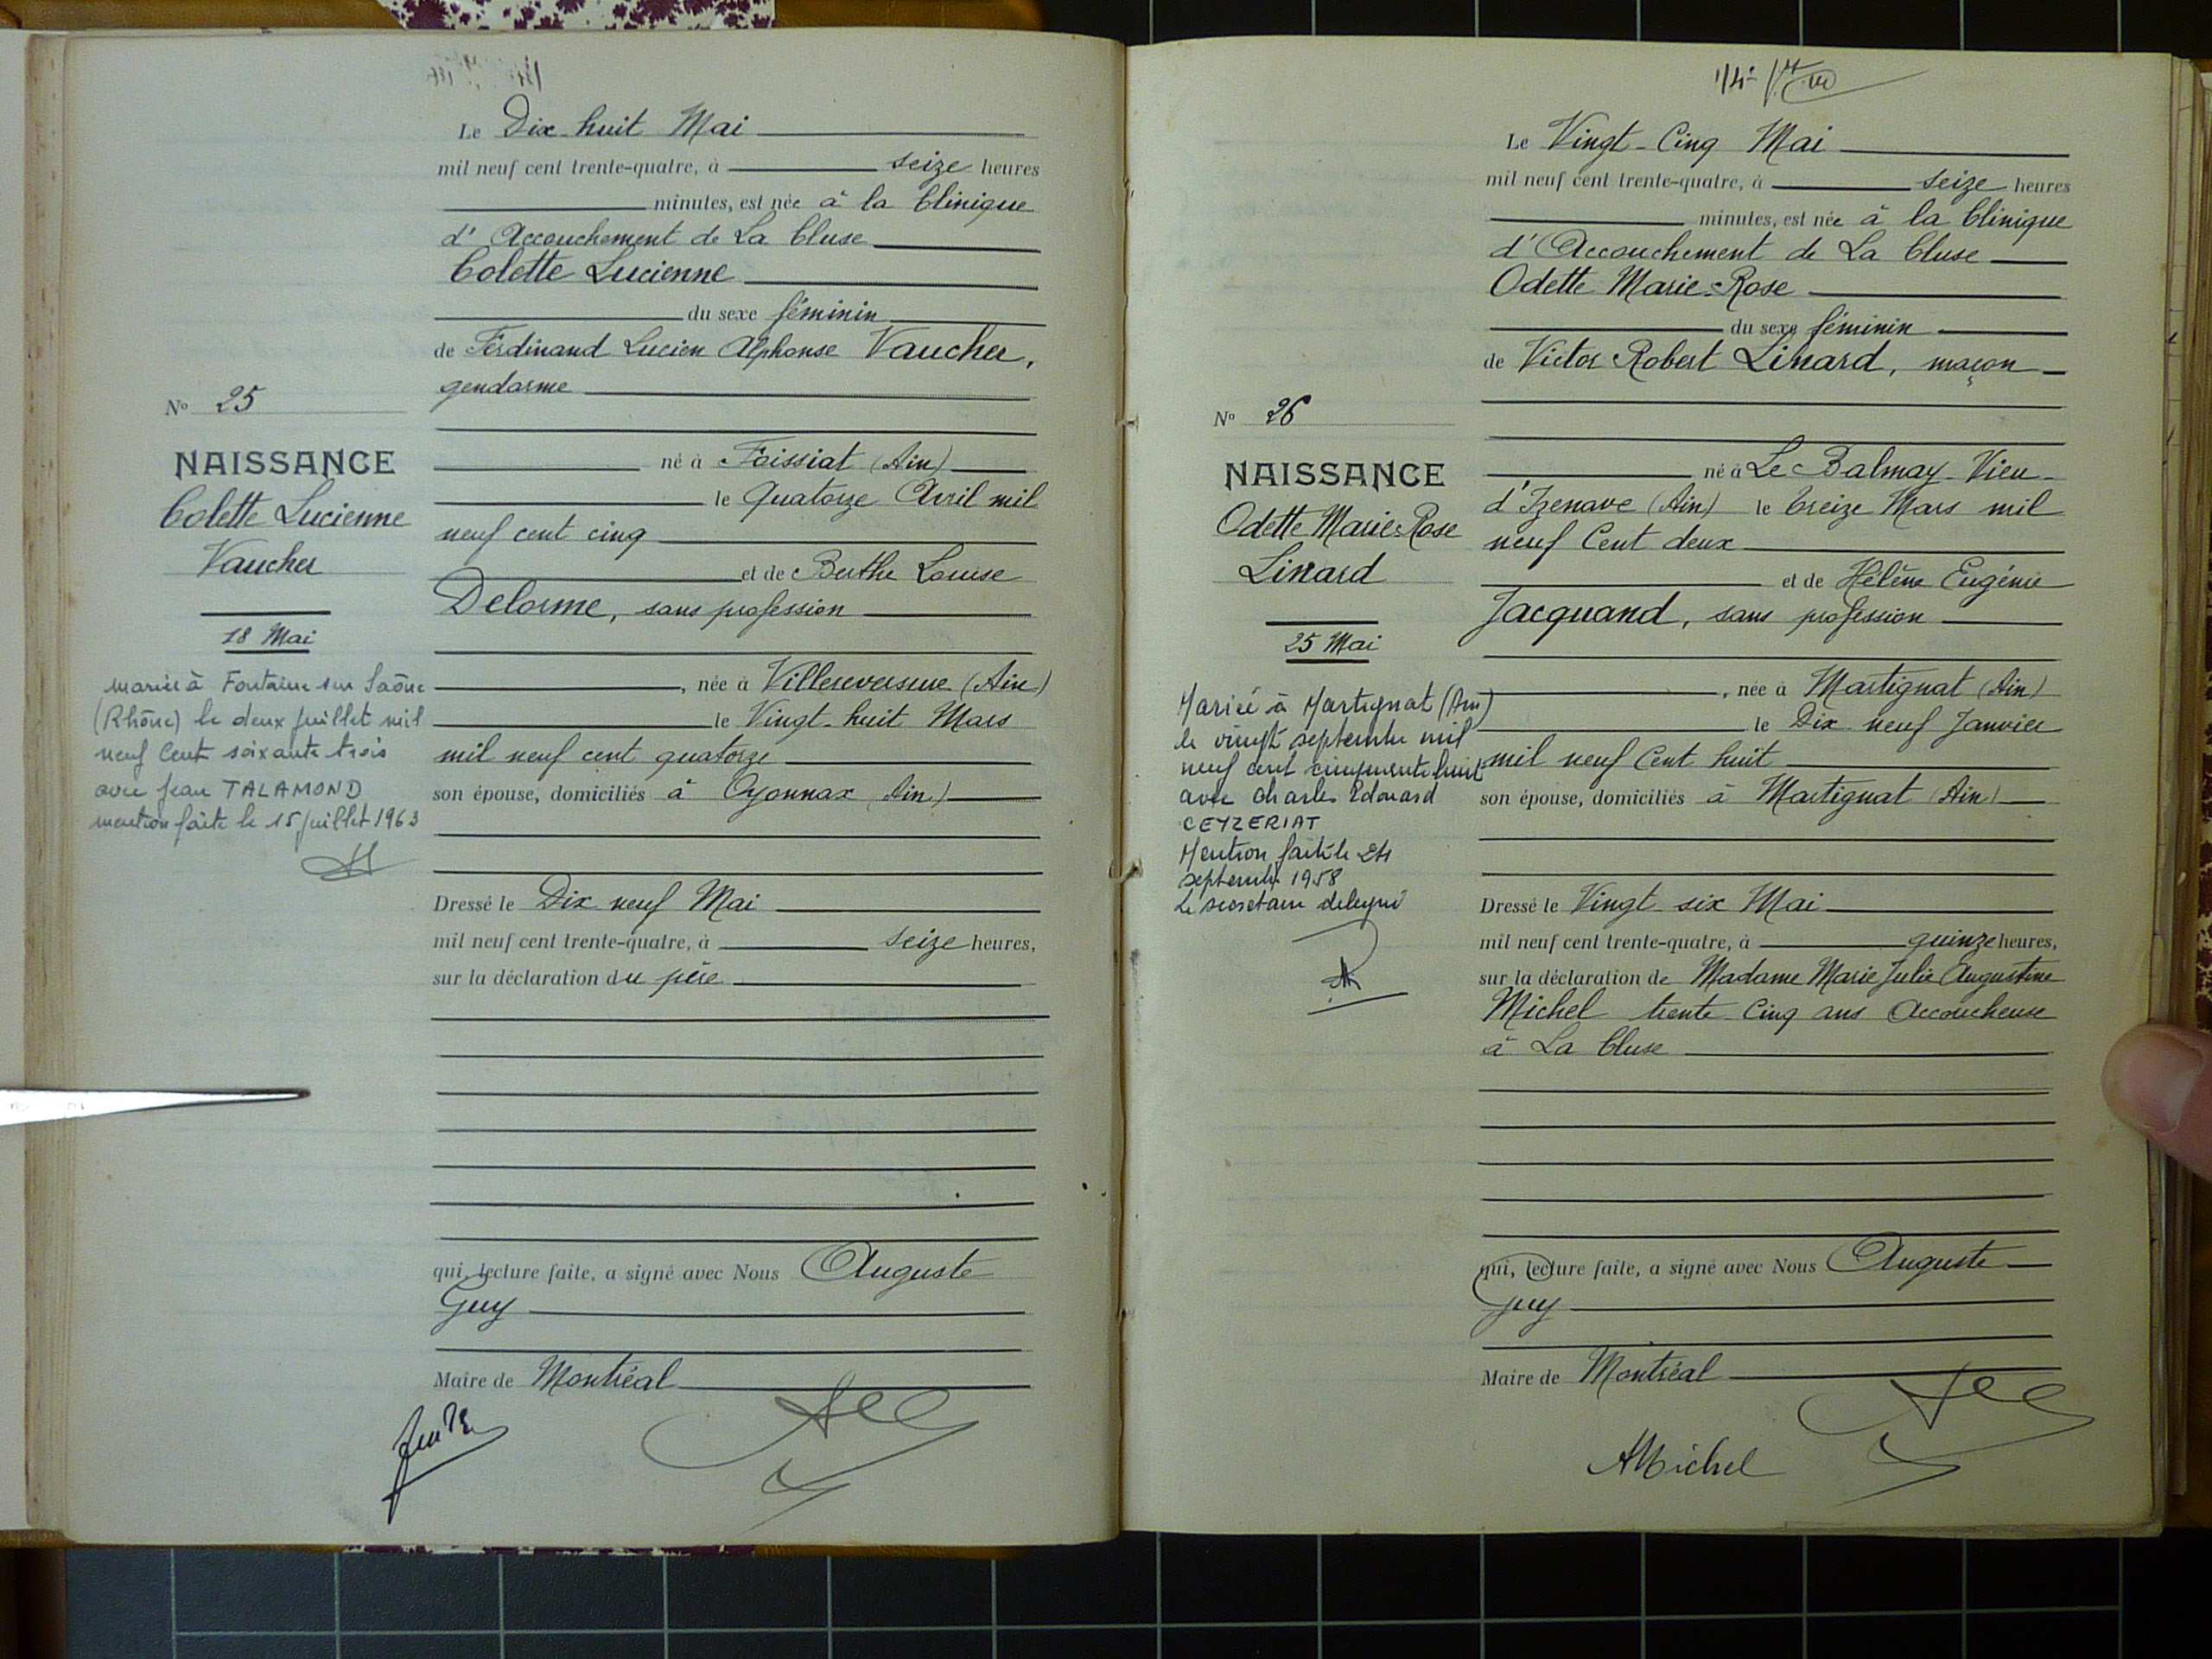 Le Dix-huit Mai
mil neuf cent trente-quatre, à seize heures
minutes, est née à la Clinique
d'Accouchement de La Cluse
Colette Lucienne
du sexe féminin
de Ferdinand Lucien Alphonse Vaucher,
gendarme
né à Foissiat (Ain)
le Quatorze Avril mil
neuf cent cinq
et de Berthe Louise
Delorme, sans profession
, née à Villereversure (Ain)
le Vingt-huit Mars
mil neuf cent quatorze
son épouse, domiciliés à Oyonnax (Ain)
Dressé le Dix neuf Mai
mil neuf cent trente-quatre, à seize heures,
sur la déclaration du père
qui, lecture faite, a signé avec Nous Auguste
Guy
Maire de Montréal
Nº 25
NAISSANCE
Colette Lucienne
Vaucher
18 Mai
mariée à Fontaine sur Saône
(Rhône) le deux juillet mil
neuf cent soixante trois
avec Jean TALAMOND
mention faite le 15 juillet 1963
Le Vingt-Cinq Mai
mil neuf cent trente-quatre, à seize heures
minutes, est née à la Clinique
d'Accouchement de La Cluse
Odette Marie-Rose
du sexe féminin
de Victor Robert Linard, maçon
né à Le Balmay-Vieu-
d'Izenave (Ain) le treize Mars mil
neuf Cent deux
et de Hélène Eugénie
Jacquand, sans profession
, née à Martignat (Ain)
le Dix-neuf Janvier
mil neuf Cent huit
son épouse, domiciliés à Martignat (Ain)
Dressé le Vingt six Mai
mil neuf cent trente-quatre, à quinze heures,
sur la déclaration de Madame Marie Julie Augustine
Michel trente-cinq ans Accoucheuse
à La Cluse
qui, lecture faite, a signé avec Nous Auguste
Guy
Maire de Montréal
AMichel
Nº 26
NAISSANCE
Odette Marie-Rose
Linard
25 Mai
Mariée à Martignat (Ain)
le vingt septembre mil
neuf cent cinquante huit
avec Charles Edouard
CEYZERIAT
Mention faite le 24
septembre 1958
Le secrétaire délégué